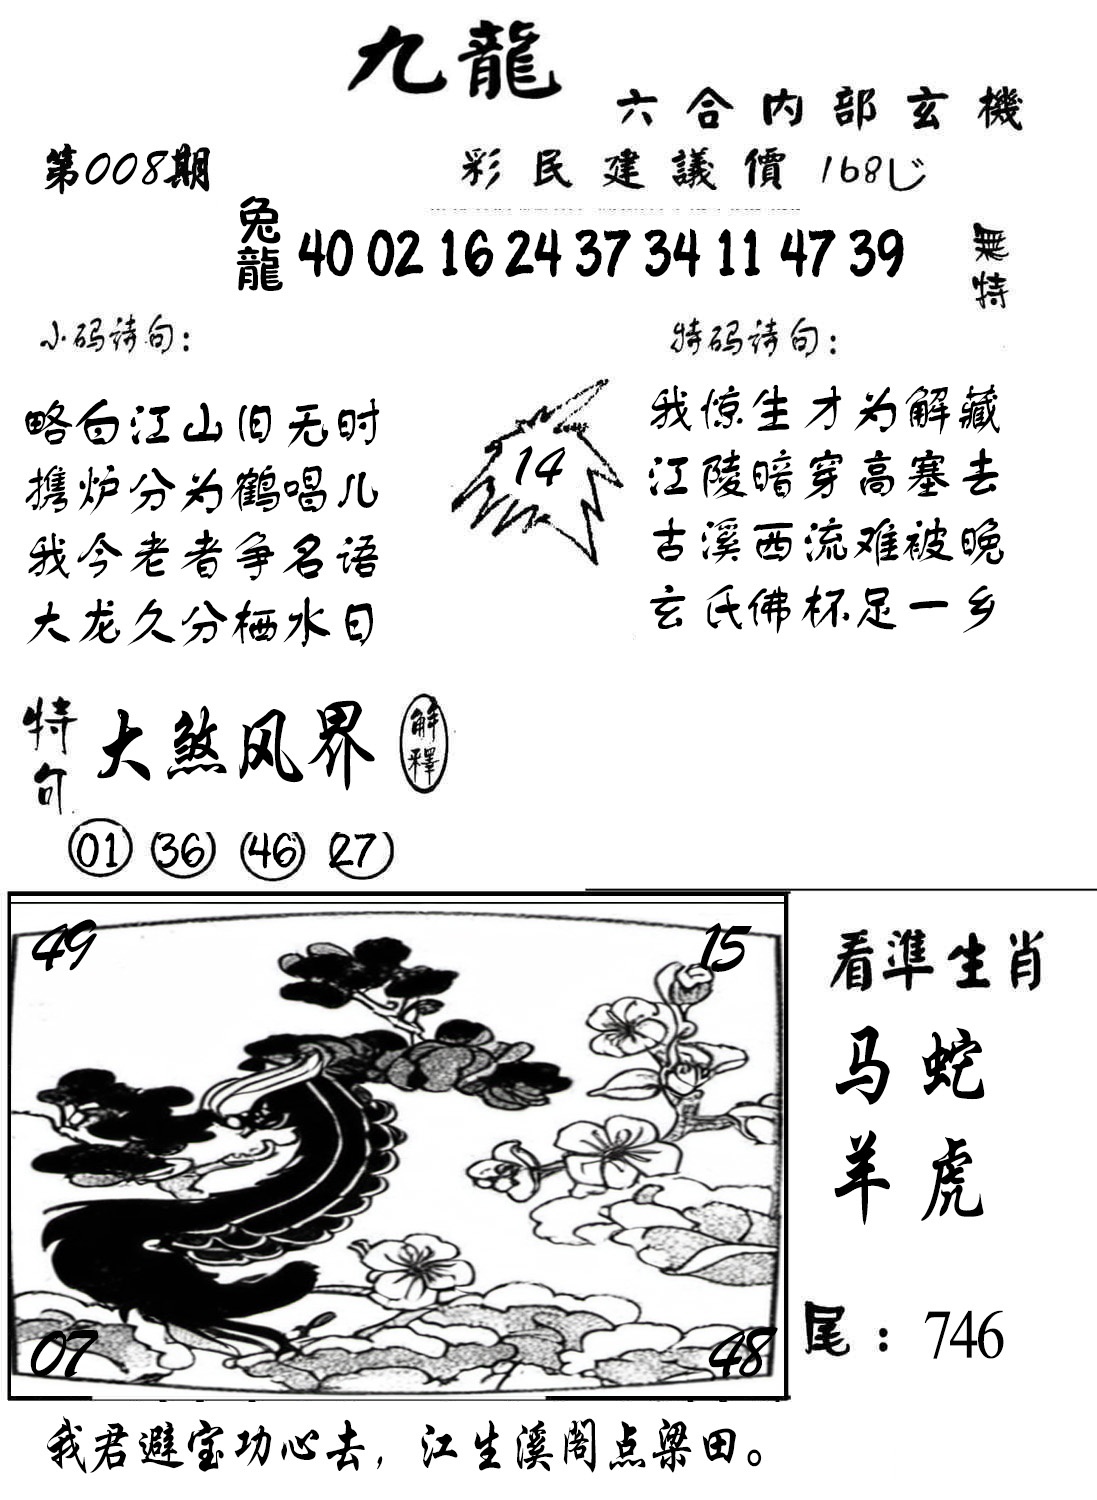 九龍
六合内部玄機
第008期
彩民建議價168じ
兔龍 40 02 16 24 37 34 11 47 39
無特
小码诗句：
特码诗句：
略白江山旧无时
携炉分为鹤唱儿
我今老者争名语
大龙久分栖水日
14
我惊生才为解藏
江陵暗穿高塞去
古溪西流难被晚
玄氏佛杯足一乡
特句
大煞风界
解釋
01 36 46 27
49 15
看準生肖
马蛇
羊虎
07 48
尾：746
我君避宝功心去，江生溪阁点梁田。